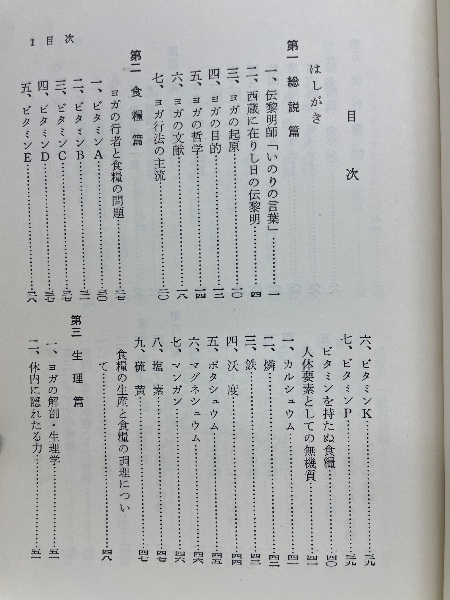 1 目次
目次
はしがき
第一 総説篇
一、伝黎明師「いのりの言葉」…………一
二、西蔵に在りし日の伝黎明…………四
三、ヨガの起原…………一〇
四、ヨガの目的…………一三
五、ヨガの哲学…………一四
六、ヨガの文献…………一八
七、ヨガ行法の主流…………二〇
第二 食糧篇
ヨガの行者と食糧の問題…………二七
一、ビタミンA…………三〇
二、ビタミンB…………三二
三、ビタミンC…………三七
四、ビタミンD…………三七
五、ビタミンE…………三八
六、ビタミンK…………三九
七、ビタミンP…………三九
ビタミンを持たぬ食糧…………四〇
人体要素としての無機質…………四一
一、カルシュウム…………四一
二、燐…………四二
三、鉄…………四三
四、沃度…………四四
五、ポタシュウム…………四五
六、マグネシュウム…………四六
七、マンガン…………四六
八、塩素…………四七
九、硫黄…………四七
食糧の生産と食糧の調理につい
て…………四八
第三 生理篇
一、ヨガの解剖・生理学…………五一
二、体内に隠れたる力…………五一